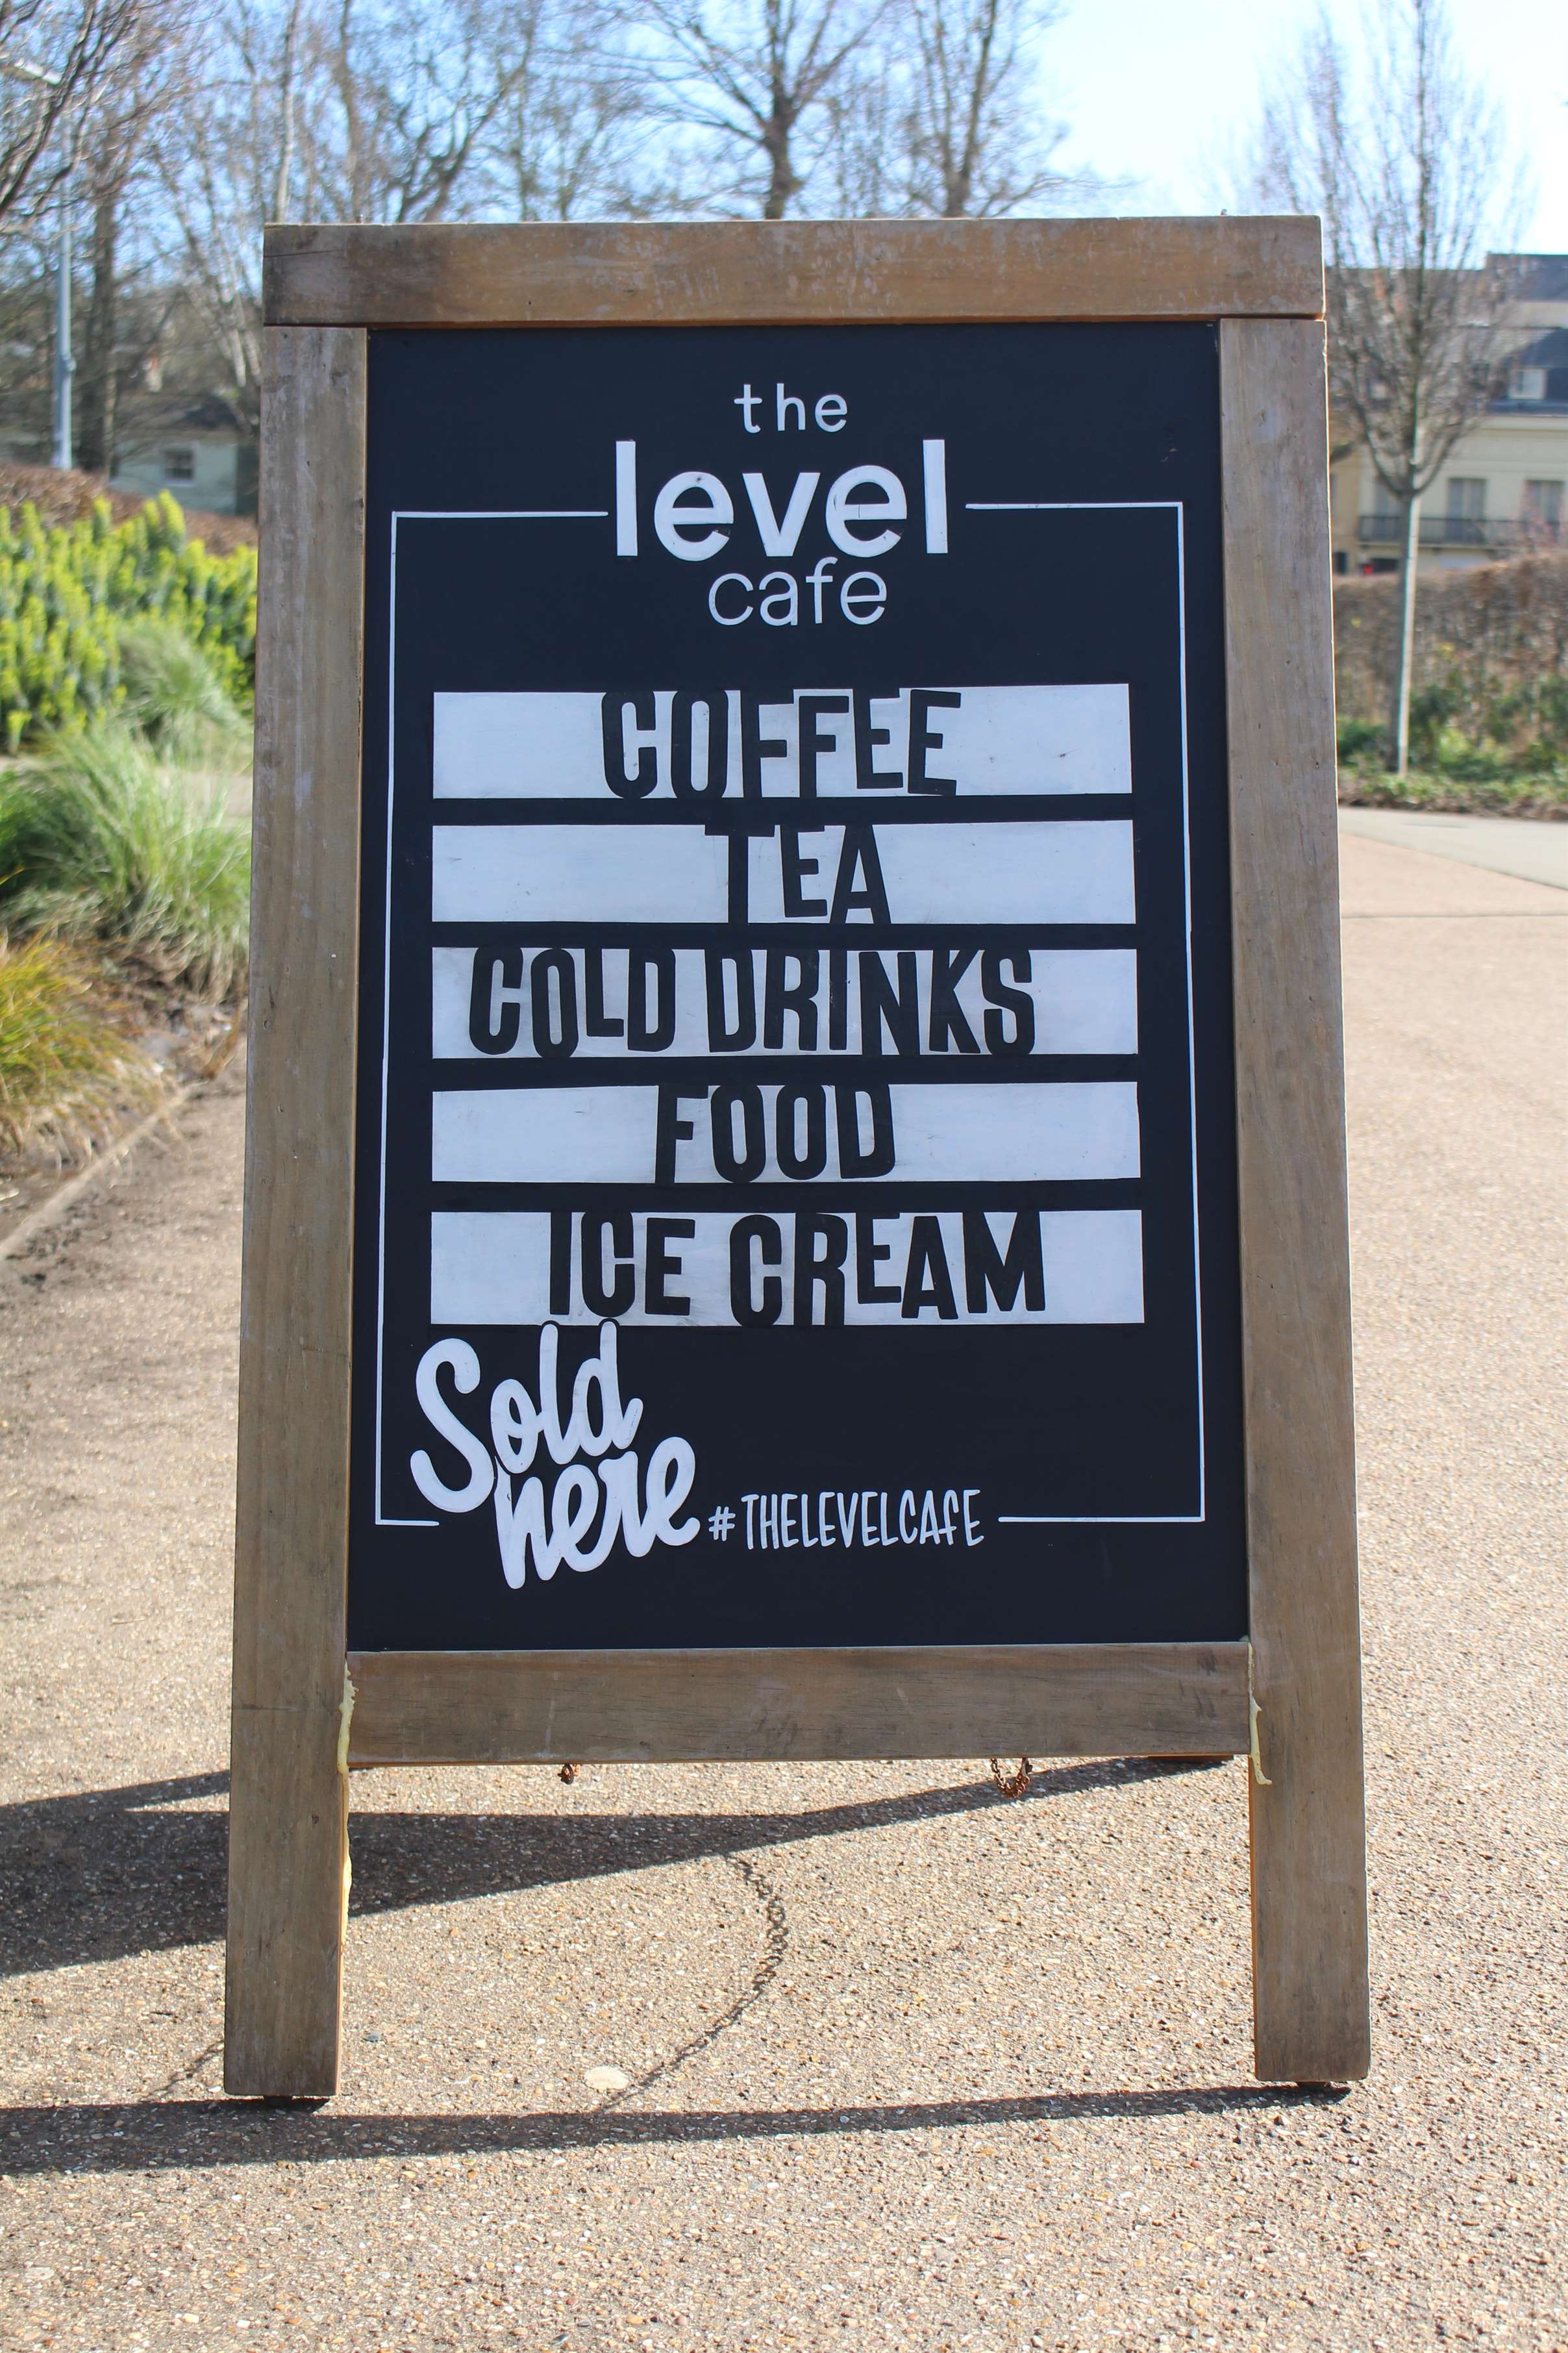 the
level
cafe
COFFEE
TEA
COLD DRINKS
FOOD
ICE CREAM
Sold
here #THELEVELCAFE